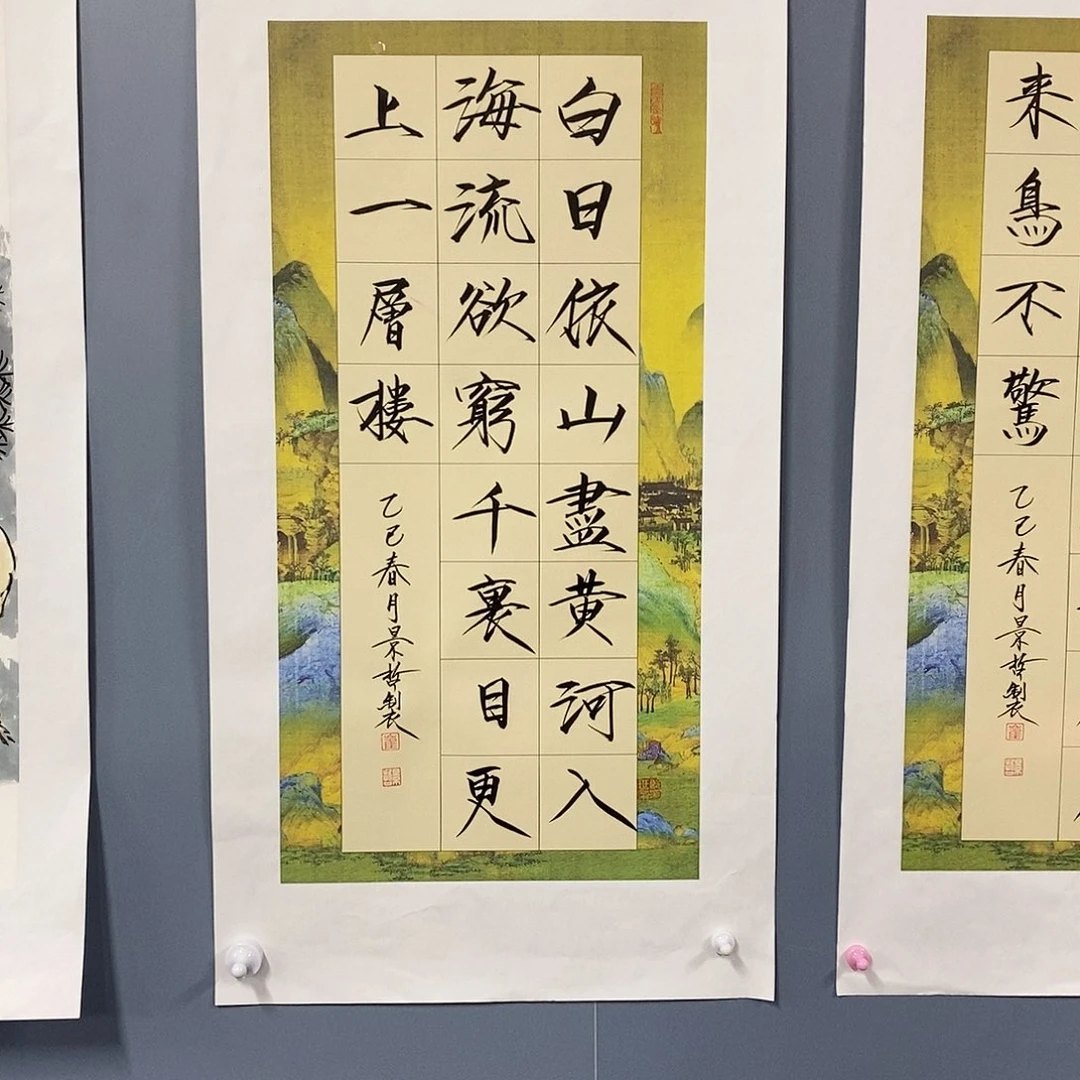 白日依山盡黄河入
海流欲窮千裏目更
上一層樓
乙巳春月景哲製
来鳥不驚
乙巳春月景哲製